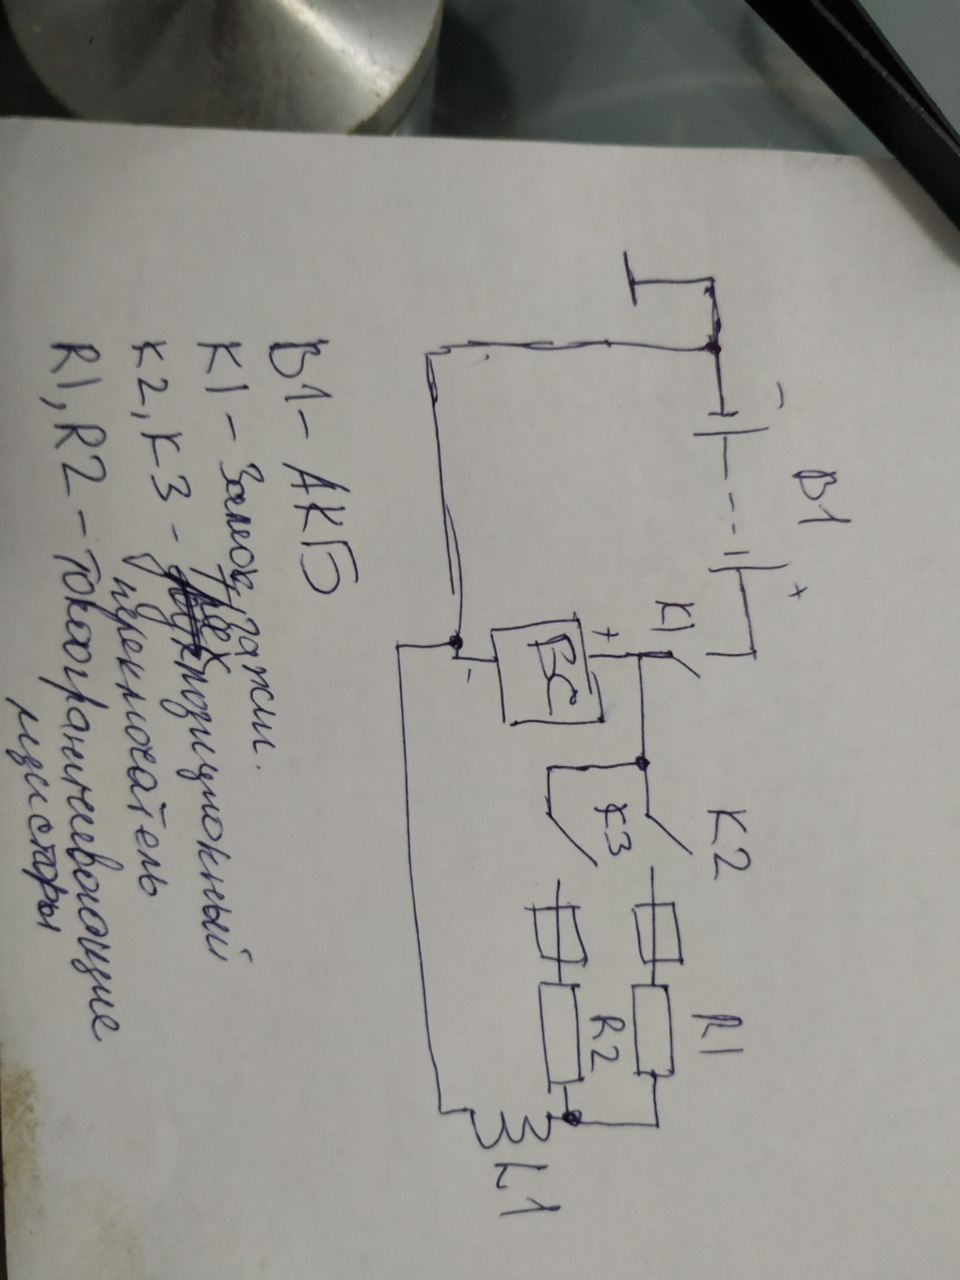 B1
-
+
K1
+
ВС
-
K2
K3
R1
R2
L1
B1 - АКБ
K1 - Замок зажи.
K2, K3 - позиционный
переключатель
R1, R2 - токоограничевающие